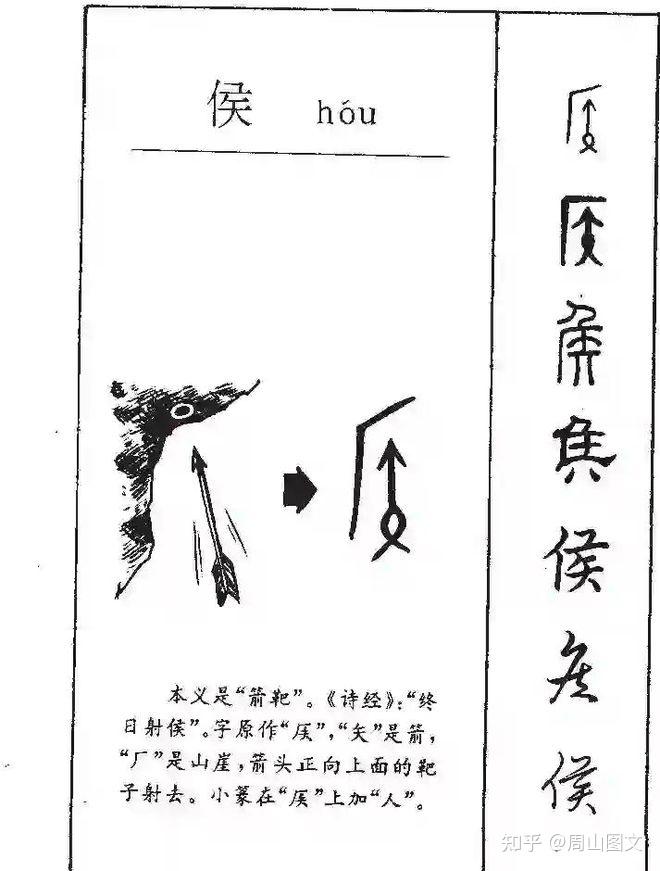 侯 hóu
本义是“箭靶”。《诗经》：“终
日射侯”。字原作“矦”，“矢”是箭，
“厂”是山崖，箭头正向上面的靶
子射去。小篆在“矦”上加“人”。
侯
知乎 @周山图文